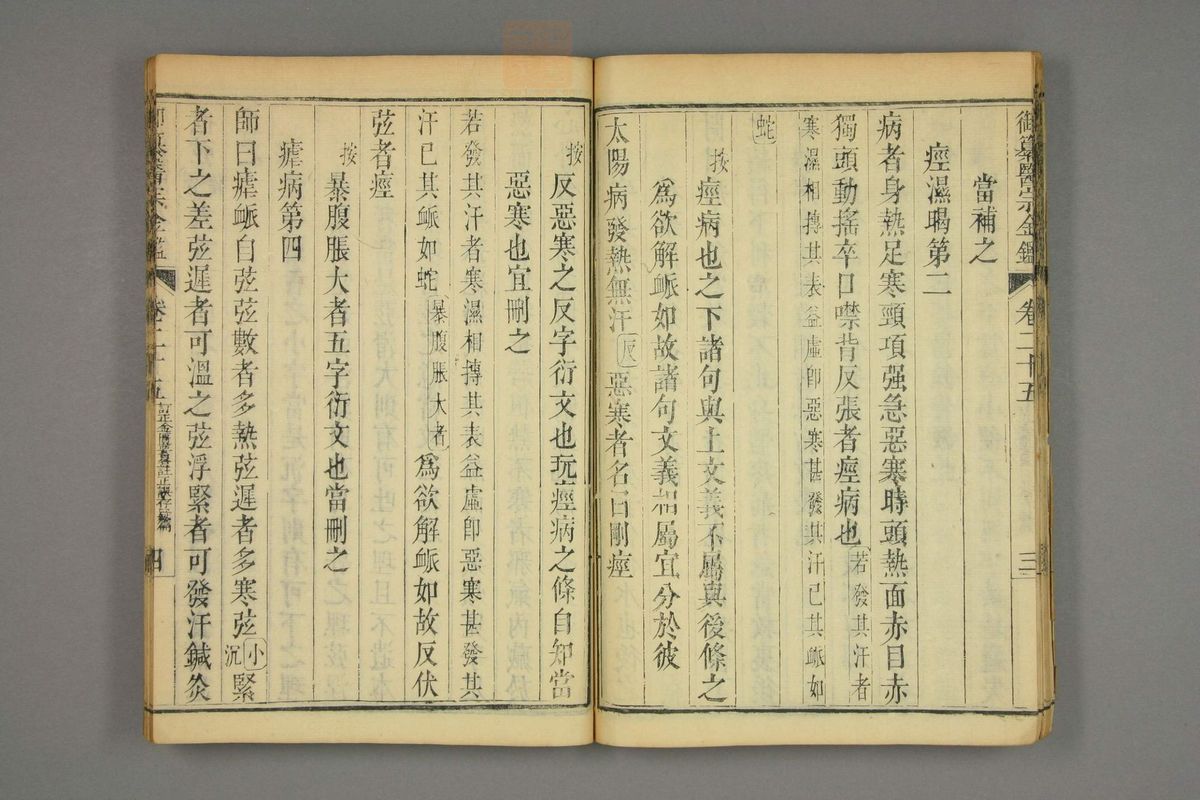 御纂醫宗金鑑 卷二十五 三
當補之
痙濕暍第二
病者身熱足寒頸項强急惡寒時頭熱面赤目赤
獨頭動搖卒口噤背反張者痙病也若發其汗者
寒濕相摶其表益虛卽惡寒甚發其汗已其䘑如
蛇
按痙病也之下諸句與上文義不屬與後條之
爲欲解䘑如故諸句文義相屬宜分於彼
太陽病發熱無汗反惡寒者名曰剛痙
按反惡寒之反字衍文也玩痙病之條自知當
惡寒也宜刪之
若發其汗者寒濕相摶其表益虛卽惡寒甚發其
汗已其䘑如蛇暴腹脹大者爲欲解䘑如故反伏
弦者痙
按暴腹脹大者五字衍文也當刪之
瘧病第四
師曰瘧䘑自弦弦數者多熱弦遲者多寒弦小緊
沉
者下之差弦遲者可溫之弦浮緊者可發汗鍼灸
御纂醫宗金鑑 卷二十五 四